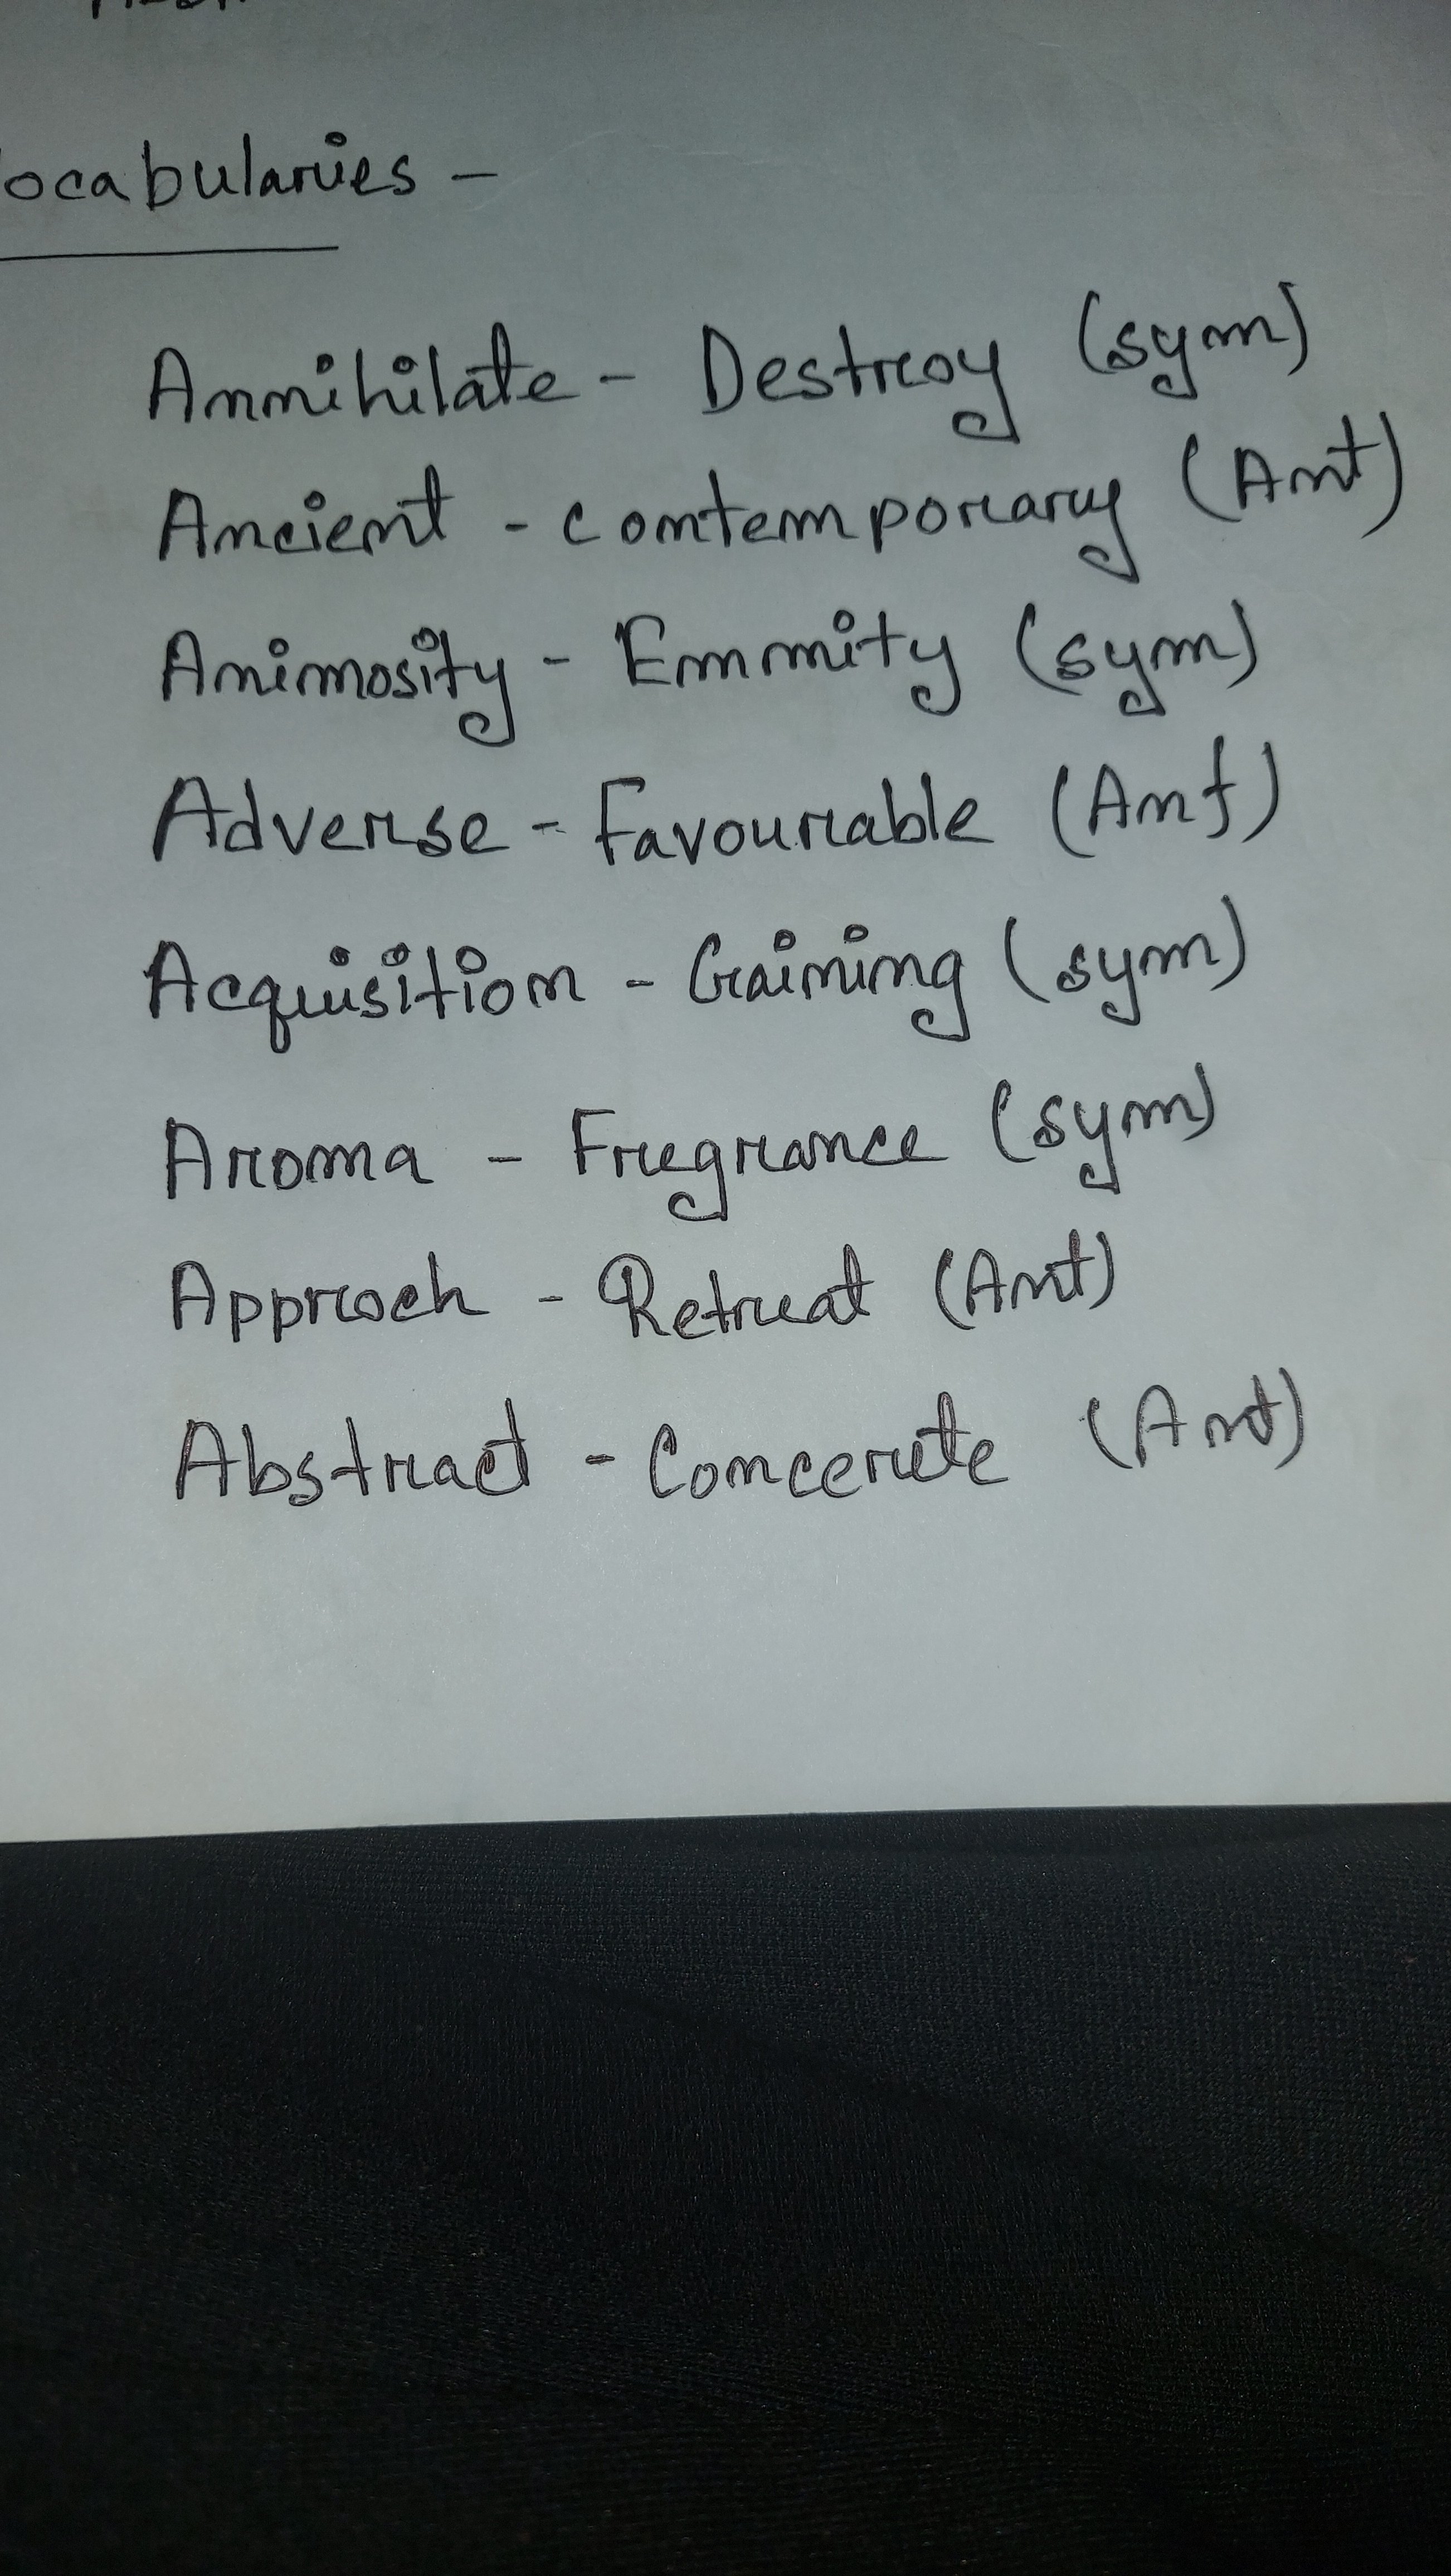 ocabularies -
Annihilate - Destroy (syn)
Ancient - contemporary (Ant)
Animosity - Enmity (syn)
Adverse - Favourable (Ant)
Acquisition - Gaining (syn)
Aroma - Fregrance (syn)
Approch - Retreat (Ant)
Abstract - Concerete (Ant)